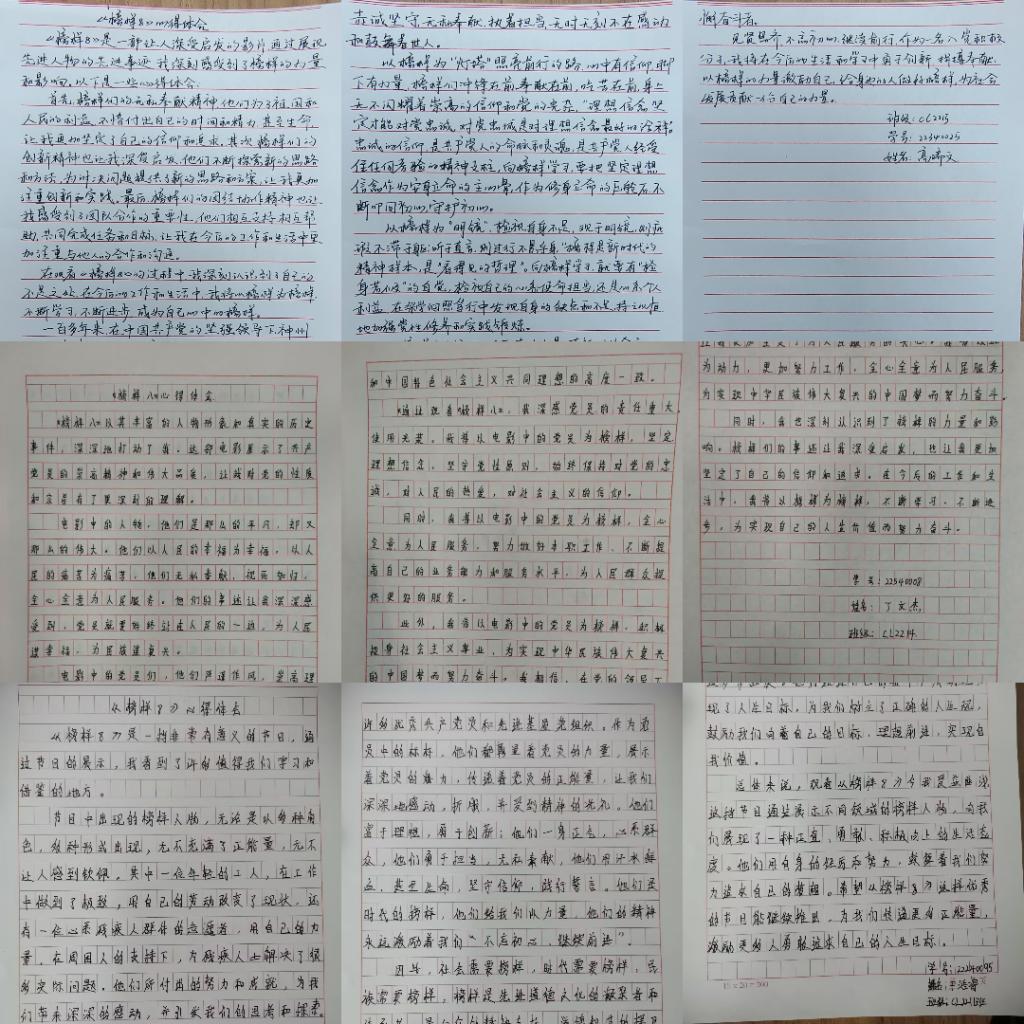 《榜样8》心得体会
《榜样8》是一部让人深受启发的影片通过展现
先进人物的先进事迹,我深刻感受到了榜样的力量
和影响,以下是一些心得体会。
首先,榜样们的无私奉献精神,他们为了祖国和
人民的利益,不惜付出自己的时间和精力,甚至生命,
让我更加坚定了自己的信仰和追求,其次,榜样们的
创新精神也让我深受启发,他们不断探索新的思路
和方法,为解决问题提供了新的思路和方案,让我更加
注重创新和实践。最后,榜样们的团结协作精神也让
我感受到了团队合作的重要性,他们相互支持,相互帮
助,共同完成任务和目标,让我在今后的工作和生活中更
加注重与他人的合作和沟通。
在观看《榜样8》的过程中,我深刻认识到了自己的
不足之处,在今后的工作和生活中,我将以榜样为榜样,
不断学习,不断进步,成为自己心中的榜样。
一百多年来,在中国共产党的坚强领导下,神州
赤诚坚守无私奉献,执着担当,无时无刻不在感动
和鼓舞着世人。
以榜样为“灯塔”照亮前行的路,心中有信仰,脚
下有力量。榜样们冲锋在前奉献在前,吃苦在前,身上
无不闪耀着崇高的信仰和党的光杂,“理想信念坚
定才能对党忠诚,对党忠诚是对理想信念最好的诠释”
忠诚的信仰,是共产党人的命脉和灵魂,是共产党人经受
住任何考验的精神支柱,向榜样学习,要把坚定理想
信念作为安身立命的主心骨,作为修身立命的压舱石,不
断叩问初心,守护初心。
以榜样为“明镜”检视自身不足,观于明镜,则疵
瑕不滞于躯;听于直言,则过行不累乎身“榜样是新时代的
精神样本,是“看得见的哲理”。向榜样学习,就要有“检
身若不及”的自觉,检视自己的心系使命担当,还是心系个人
利益,在深学细照笃行中发现自身的缺点和不足,持之以恒
地加强党性修养和实践锻炼。
斓奋斗者。
见贤思齐,不忘初心,继续前行,作为一名入党积极
分子,我将在今后的生活和学习中勇于创新,拼搏奉献,
以榜样的力量激励自己,给身边的人做好榜样,为社会
发展贡献一份自己的力量。
班级:CL2213
学号:22340025
《榜样八》心得体会
《榜样八》以其丰富的人物形象和真实的历史
事件,深深地打动了我。这部电影展示了共产
党员的崇高精神和伟大品质,让我对党的性质
和宗旨有了更深刻的理解。
电影中的人物,他们是那么的平凡,却又
那么的伟大。他们以人民的幸福为幸福,以人
民的痛苦为痛苦,他们无私奉献,视死如归,
全心全意为人民服务。他们的事迹让我深深感
受到,党员就要始终站在人民的一边,为人民
谋幸福,为民族谋复兴。
电影中的党员们,他们严谨作风,崇高理
和中国特色社会主义共同理想的高度一致。
通过观看《榜样八》,我深感党员的责任重大,
使命光荣。我将以电影中的党员为榜样,坚定
理想信念,坚守党性原则,始终保持对党的忠
诚,对人民的热爱,对社会主义的信仰。
同时,我将以电影中的党员为榜样,全心
全意为人民服务,努力做好本职工作,不断提
高自己的业务能力和服务水平,为人民群众提
供更好的服务。
此外,我将以电影中的党员为榜样,积极
投身社会主义事业,为实现中华民族伟大复兴
的中国梦而努力奋斗。我相信,在党的领导下
为动力,更加努力工作,全心全意为人民服务,
为实现中华民族伟大复兴的中国梦而努力奋斗。
同时,我也深刻认识到了榜样的力量和影
响。榜样们的事迹让我深受启发,也让我更加
坚定了自己的信仰和追求。在今后的工作和生
活中,我将以榜样为榜样,不断学习,不断进
步,为实现自己的人生价值而努力奋斗。
学号:22540008
姓名:丁文杰
班级:CL2214
《榜样8》心得体会
《榜样8》是一档非常有意义的节目,通
过节目的展示,我看到了许多值得我们学习和
借鉴的地方。
节目中出现的榜样人物,无论是以何种角
色,何种形式出现,无不充满了正能量,无不
让人感到钦佩。其中一位年轻的工人,在工作
中做到了极致,用自己的劳动改变了现状,还
有一位心系残疾人群体的志愿者,用自己的力
量,在周围人的支持下,为残疾人士解决了很
多实际问题。他们所付出的努力和成就,为我
们带来深深的感动,并引发我们的思考和探索。
许多优秀共产党员和先进基层党组织,作为党
员中的标杆,他们都彰显着党员的力量,展示
着党员的魅力,传递着党员的正能量,让我们
深深地感动,折服,并受到精神的洗礼。他们
富于理想,勇于创新;他们一身正气,心系群
众,他们勇于担当,无私奉献,他们用汗水鲜
血,甚至生命,坚守信仰,践行誓言。他们是
时代的榜样,他们给我们以力量。他们的精神
永远激励着我们“不忘初心,继续前进”。
因此,社会需要榜样,时代需要榜样,民
族需要榜样,榜样是先进道德文化的标杆者和
现了人生目标,为我们树立了正确的人生观,
鼓励我们向着自己的目标,理想前进,实现自
我价值。
总体来说,观看《榜样8》令我受益匪浅
这档节目通过展示不同领域的榜样人物,向我
们展现了一种正直、勇敢、积极向上的生活态
度。他们用自身的经历和努力,鼓舞着我们努
力追求自己的梦想。希望《榜样8》这样优秀
的节目能继续推出,为我们传递更多正能量,
激励更多人勇敢追求自己的人生目标。
15×20=300